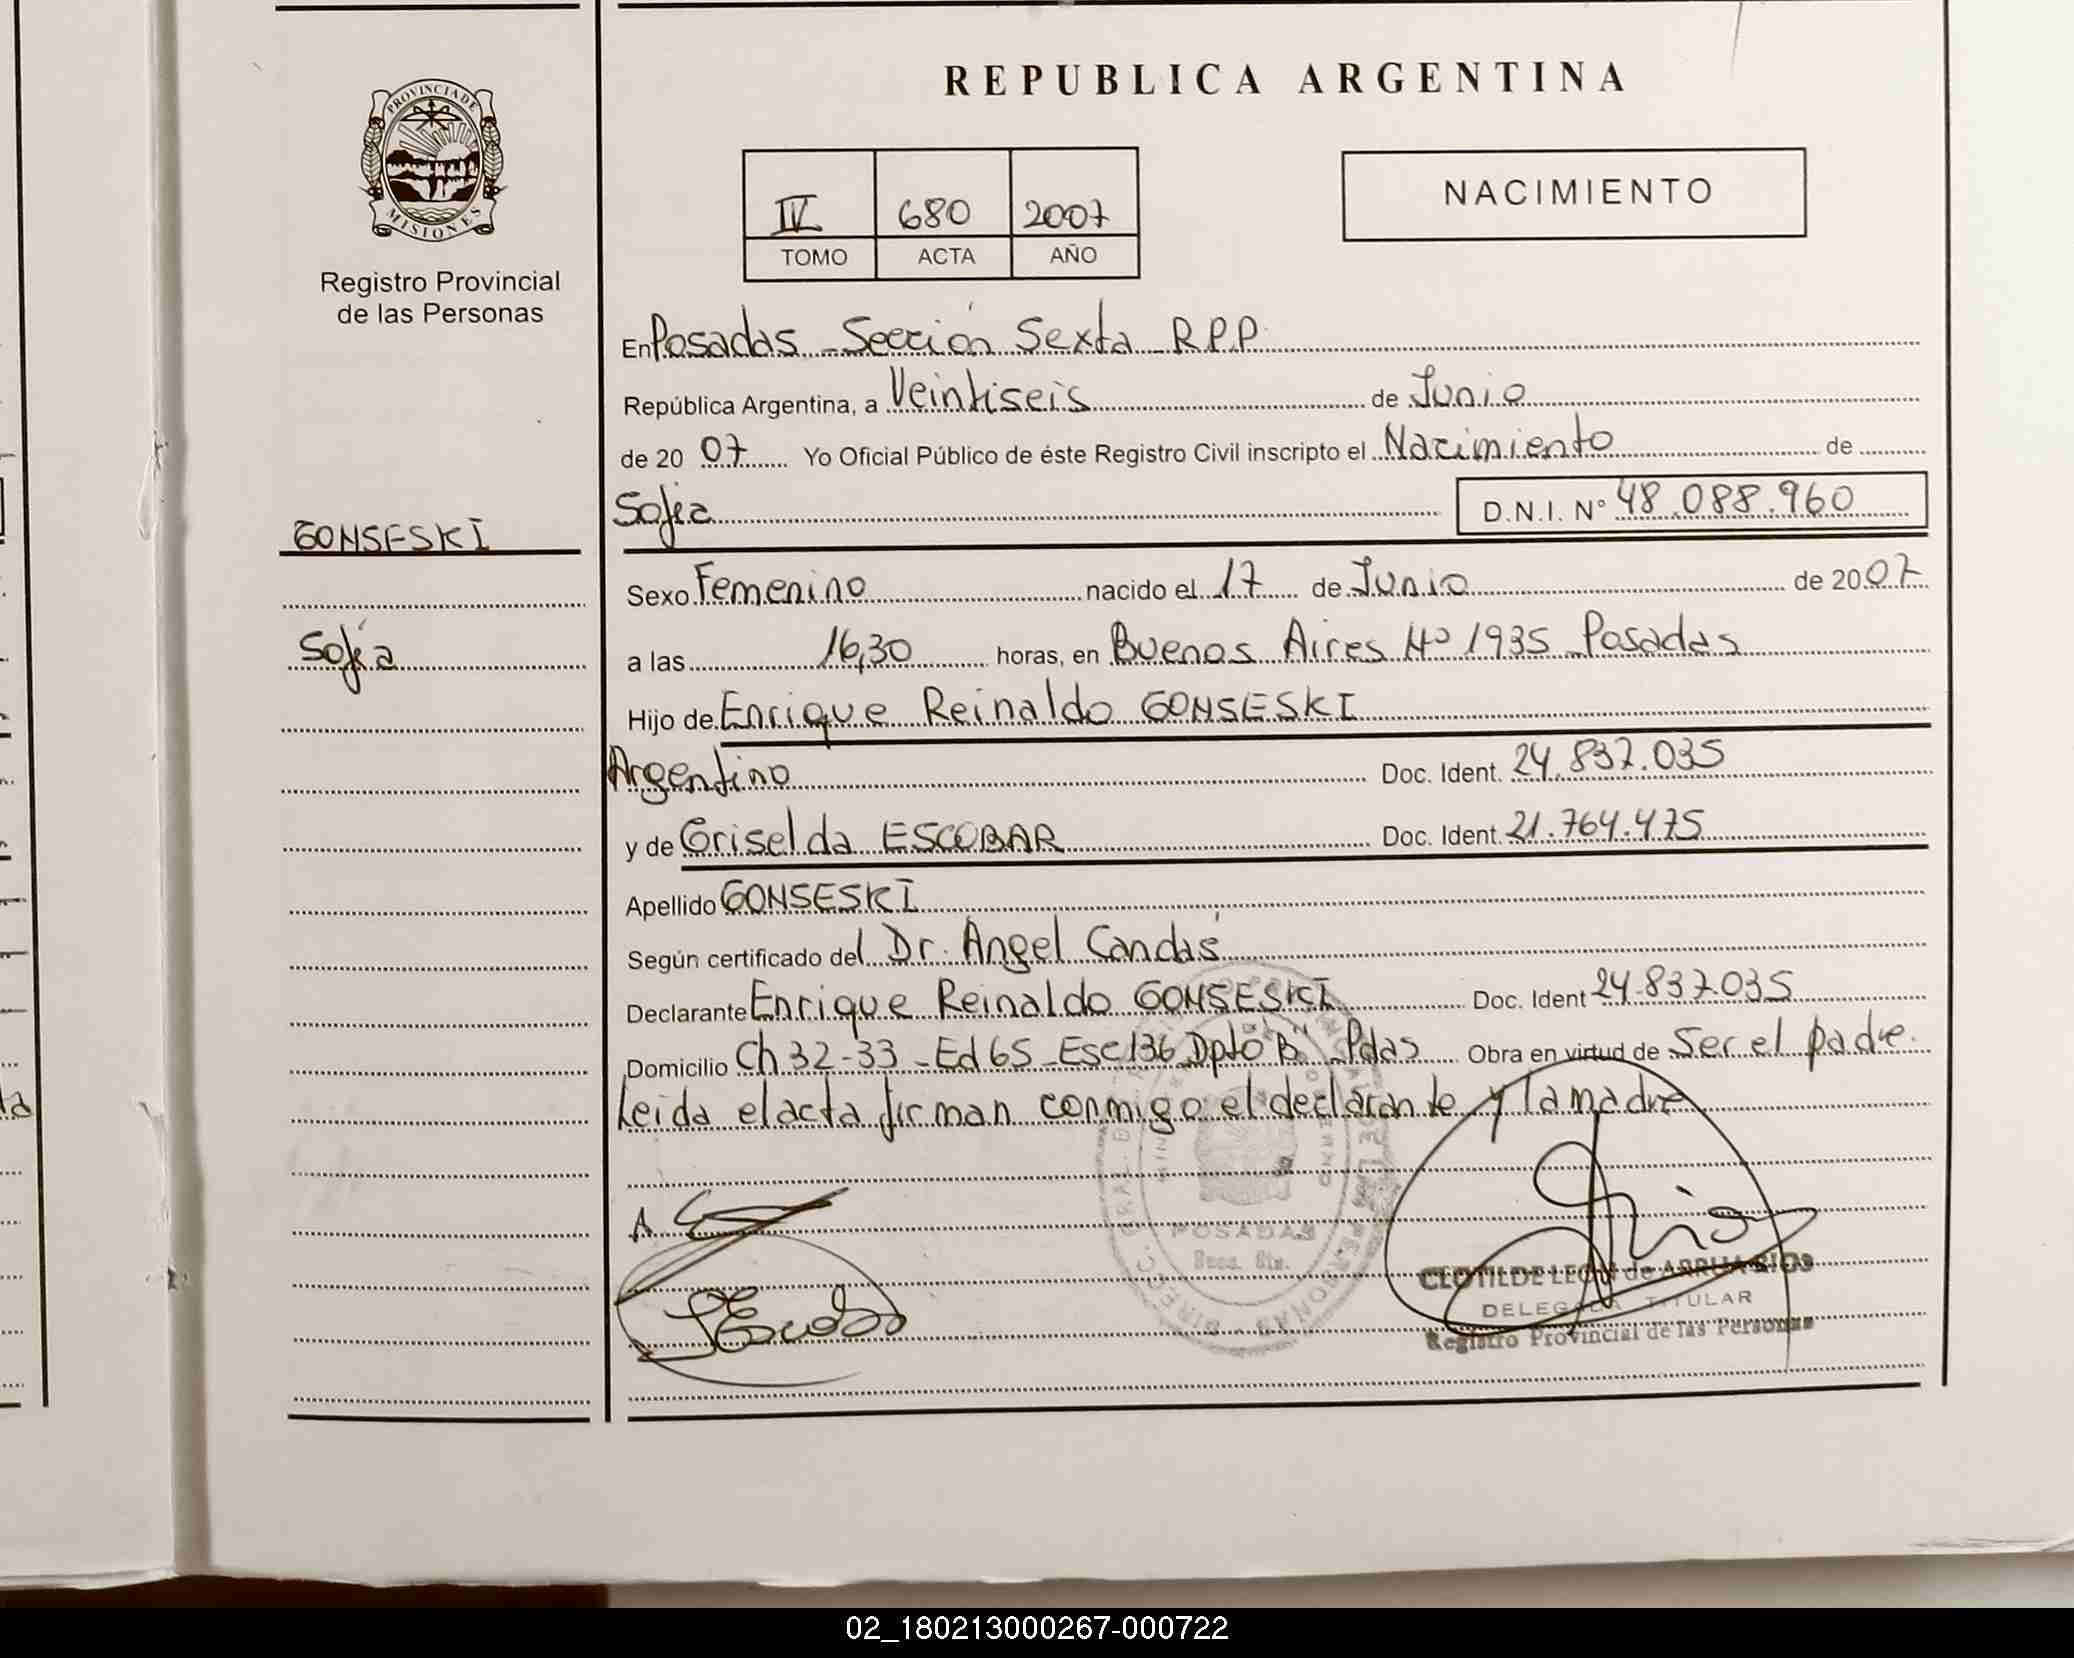 PROVINCIA DE
MISIONES
Registro Provincial
de las Personas
GONSESKI
Sofía
REPUBLICA ARGENTINA
IV 680 2007
TOMO ACTA AÑO
NACIMIENTO
En Posadas - Sección Sexta - R.P.P.
República Argentina, a Veintiseis de Junio
de 2007 Yo Oficial Público de éste Registro Civil inscripto el Nacimiento de
Sofia D.N.I. N° 48.088.960
Sexo Femenino nacido el 17 de Junio de 2007
a las 16,30 horas, en Buenos Aires N° 1935 - Posadas
Hijo de Enrique Reinaldo GONSESKI
Argentino Doc. Ident. 24.837.035
y de Griselda ESCOBAR Doc. Ident. 21.764.475
Apellido GONSESKI
Según certificado del Dr. Angel Candás
Declarante Enrique Reinaldo GONSESKI Doc. Ident 24.837.035
Domicilio Ch 32-33 - Ed 65 - Esc 136 Dpto "B" - Pdas Obra en virtud de Ser el padre.
Leida el acta firman conmigo el declarante y la madre
POSADAS
Secc. 6ta.
CLOTILDE LEON de ARRUA RIOS
DELEGADA TITULAR
Registro Provincial de las Personas
02_180213000267-000722